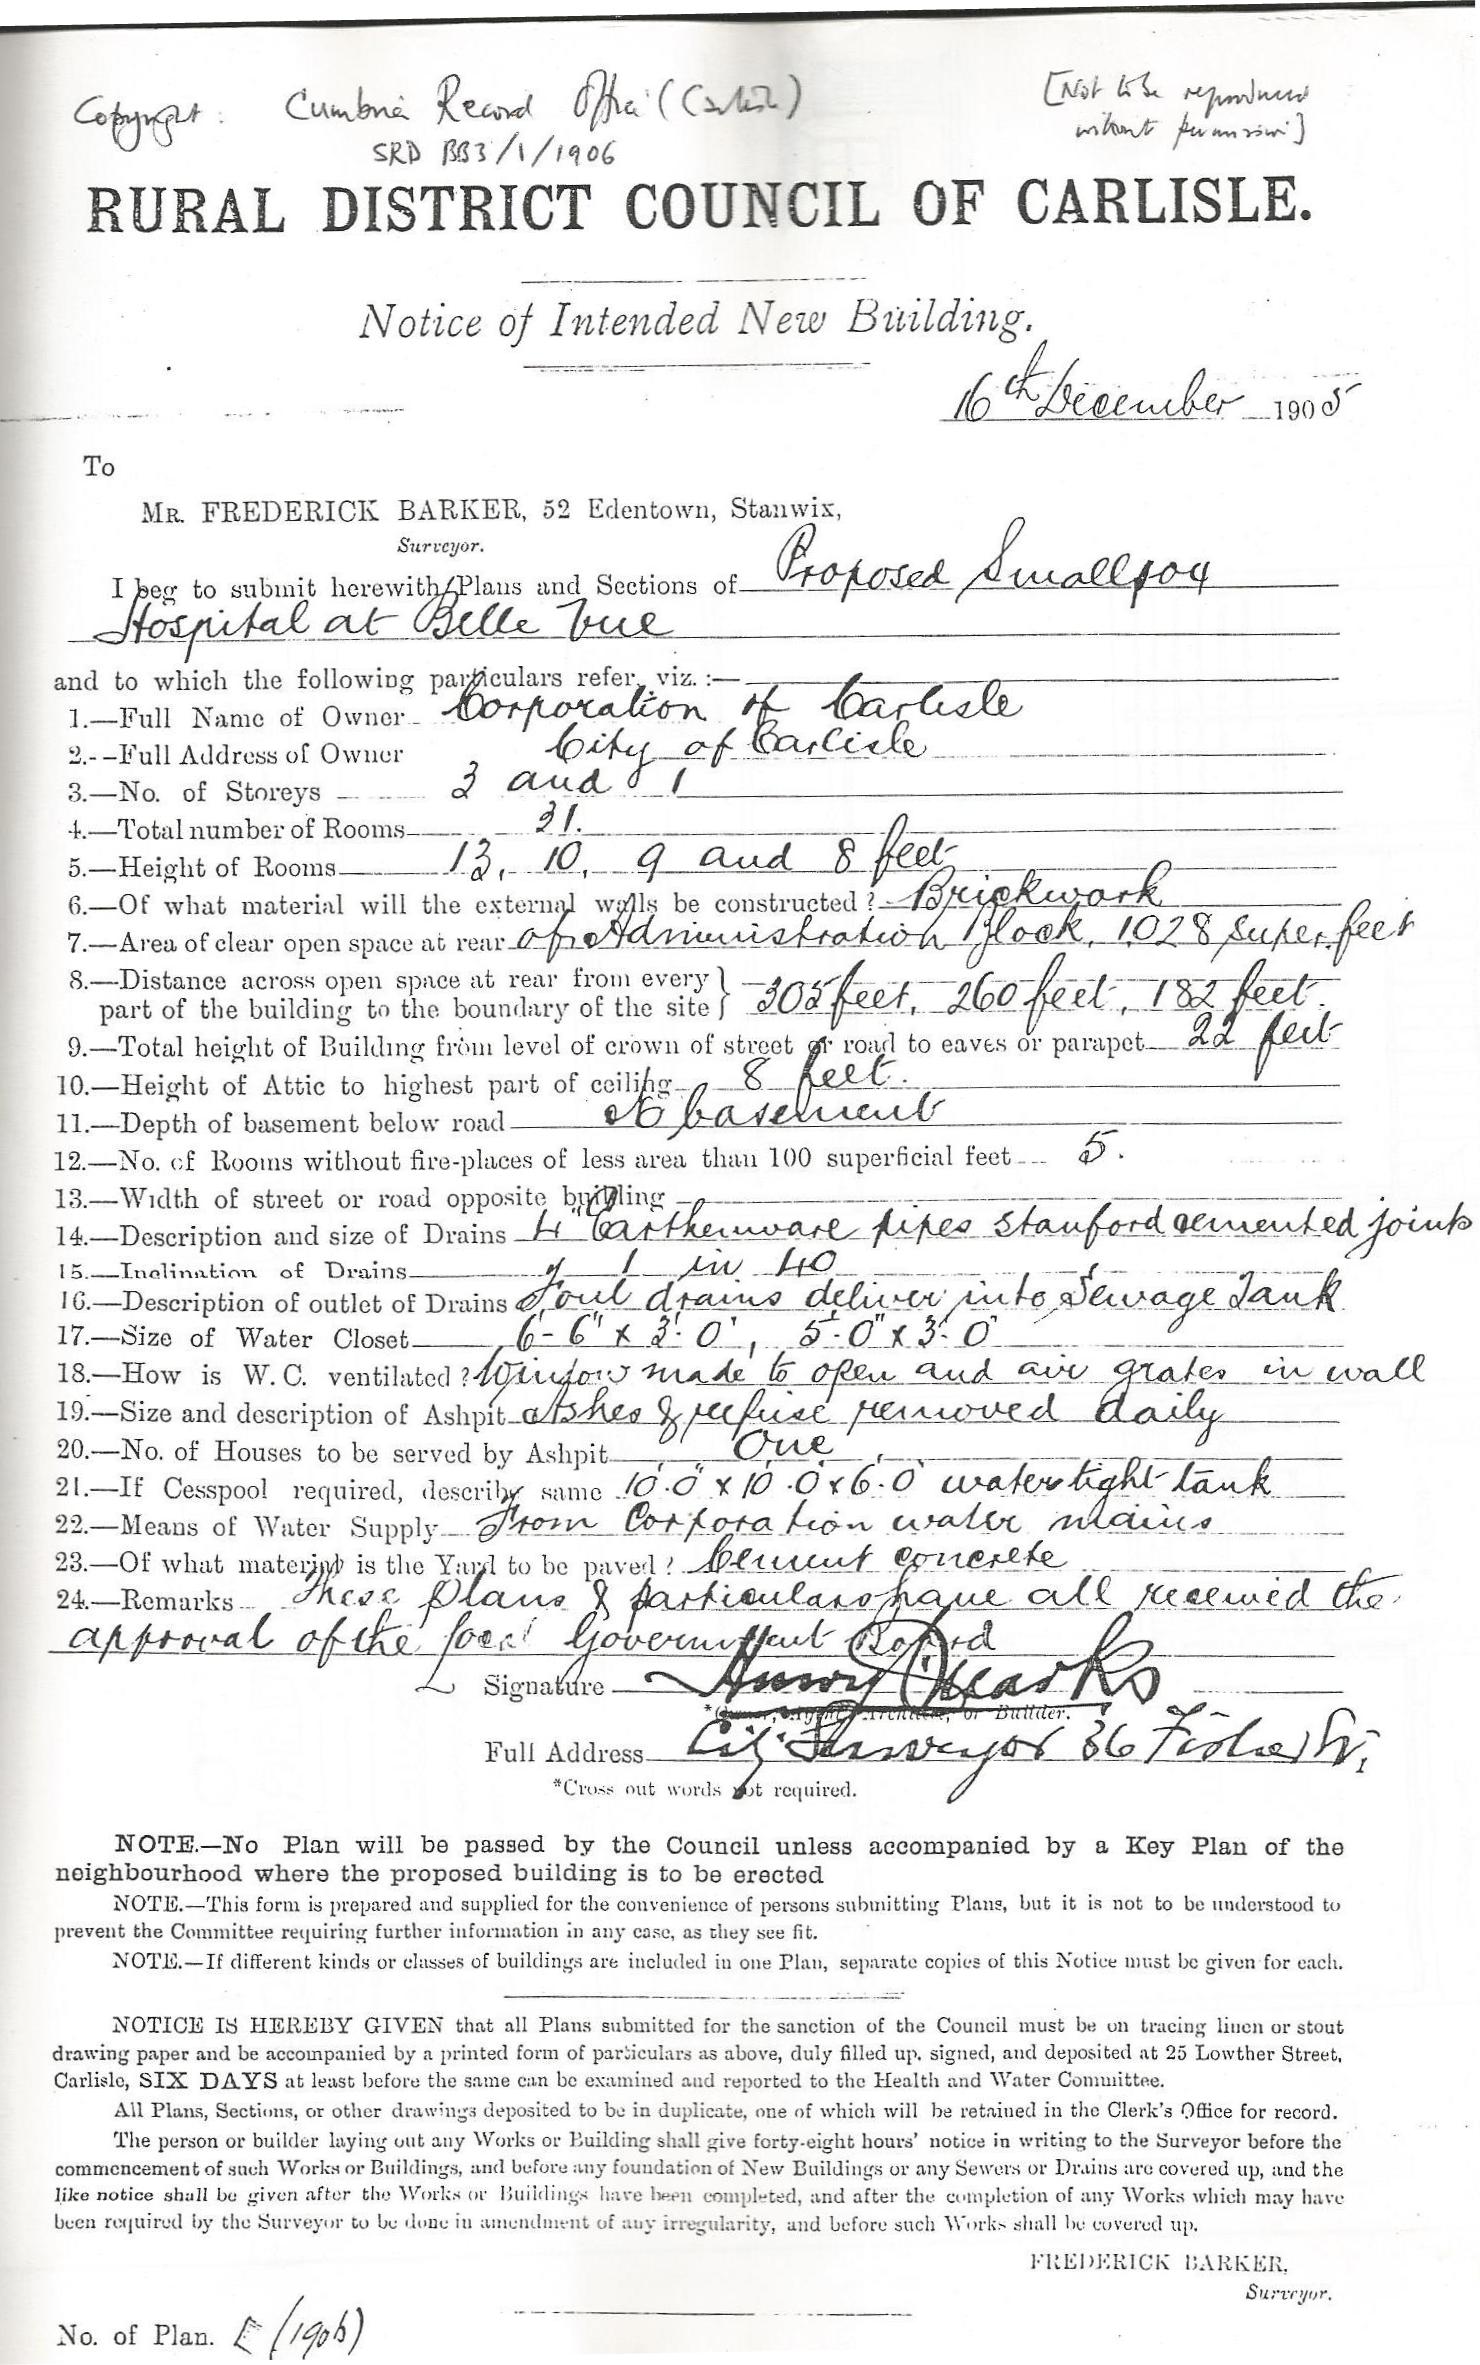 Copyright: Cumbria Record Office (Carlisle)
[Not to be reproduced
without permission]
SRD BB3/1/1906
RURAL DISTRICT COUNCIL OF CARLISLE.
Notice of Intended New Building.
16th December 1905
To
MR. FREDERICK BARKER, 52 Edentown, Stanwix,
Surveyor.
I beg to submit herewith Plans and Sections of Proposed Smallpox
Hospital at Belle Vue
and to which the following particulars refer, viz.:—
1.—Full Name of Owner Corporation of Carlisle
2.—Full Address of Owner City of Carlisle
3.—No. of Storeys 3 and 1
4.—Total number of Rooms 31.
5.—Height of Rooms 13, 10, 9 and 8 feet
6.—Of what material will the external walls be constructed? Brickwork
7.—Area of clear open space at rear of Administration Block, 1028 super. feet
8.—Distance across open space at rear from every
part of the building to the boundary of the site } 305 feet, 260 feet, 182 feet.
9.—Total height of Building from level of crown of street or road to eaves or parapet 22 feet
10.—Height of Attic to highest part of ceiling 8 feet.
11.—Depth of basement below road No basement
12.—No. of Rooms without fire-places of less area than 100 superficial feet 5.
13.—Width of street or road opposite building
14.—Description and size of Drains 4" Earthenware pipes Stanford cemented joints
15.—Inclination of Drains 1 in 40
16.—Description of outlet of Drains Foul drains deliver into Sewage Tank
17.—Size of Water Closet 6'-6" x 3'-0", 5'-0" x 3'-0"
18.—How is W.C. ventilated? Window made to open and air grates in wall
19.—Size and description of Ashpit Ashes & refuse removed daily
20.—No. of Houses to be served by Ashpit One
21.—If Cesspool required, describe same 10'.0" x 10'.0" x 6'.0" watertight tank
22.—Means of Water Supply From Corporation water mains
23.—Of what material is the Yard to be paved? Cement concrete
24.—Remarks These plans & particulars have all received the
approval of the Local Government Board
Signature Henry Marks
*Owner, Agent, Architect, or Builder.
Full Address City Surveyor 36 Fisher St.
*Cross out words not required.
NOTE.—No Plan will be passed by the Council unless accompanied by a Key Plan of the
neighbourhood where the proposed building is to be erected
NOTE.—This form is prepared and supplied for the convenience of persons submitting Plans, but it is not to be understood to
prevent the Committee requiring further information in any case, as they see fit.
NOTE.—If different kinds or classes of buildings are included in one Plan, separate copies of this Notice must be given for each.
NOTICE IS HEREBY GIVEN that all Plans submitted for the sanction of the Council must be on tracing linen or stout
drawing paper and be accompanied by a printed form of particulars as above, duly filled up, signed, and deposited at 25 Lowther Street,
Carlisle, SIX DAYS at least before the same can be examined and reported to the Health and Water Committee.
All Plans, Sections, or other drawings deposited to be in duplicate, one of which will be retained in the Clerk's Office for record.
The person or builder laying out any Works or Building shall give forty-eight hours' notice in writing to the Surveyor before the
commencement of such Works or Buildings, and before any foundation of New Buildings or any Sewers or Drains are covered up, and the
like notice shall be given after the Works or Buildings have been completed, and after the completion of any Works which may have
been required by the Surveyor to be done in amendment of any irregularity, and before such Works shall be covered up.
FREDERICK BARKER,
Surveyor.
No. of Plan. E (1906)